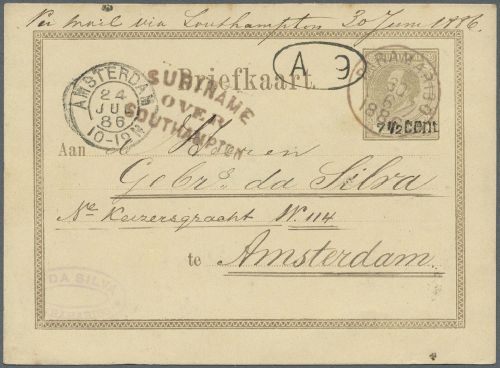 Per mail via Southampton 30 Juni 1886.
Briefkaart
A 9
AMSTERDAM
24
JUL
86
10-12N
SURINAME
OVER
SOUTHAMPTON
PARAMARIBO
30
6
1886
7½ cent
Aan de Heeren
Gebrs. da Silva
Nr Keizersgracht Nº. 114
te Amsterdam.
DA SILVA